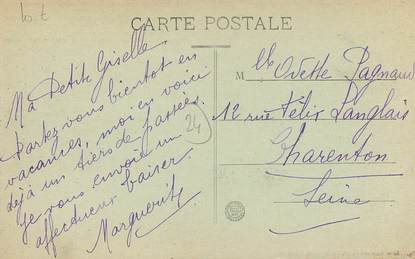 10 t
CARTE POSTALE
Ma Petite Giselle
Partez vous bientot en
vacances, moi en voici
déjà un tiers de passées.
Je vous envoie un
affectueux baiser.
Marguerite
24
M lle Odette Pagnard
12 rue Félix Langlais
Charenton
Seine